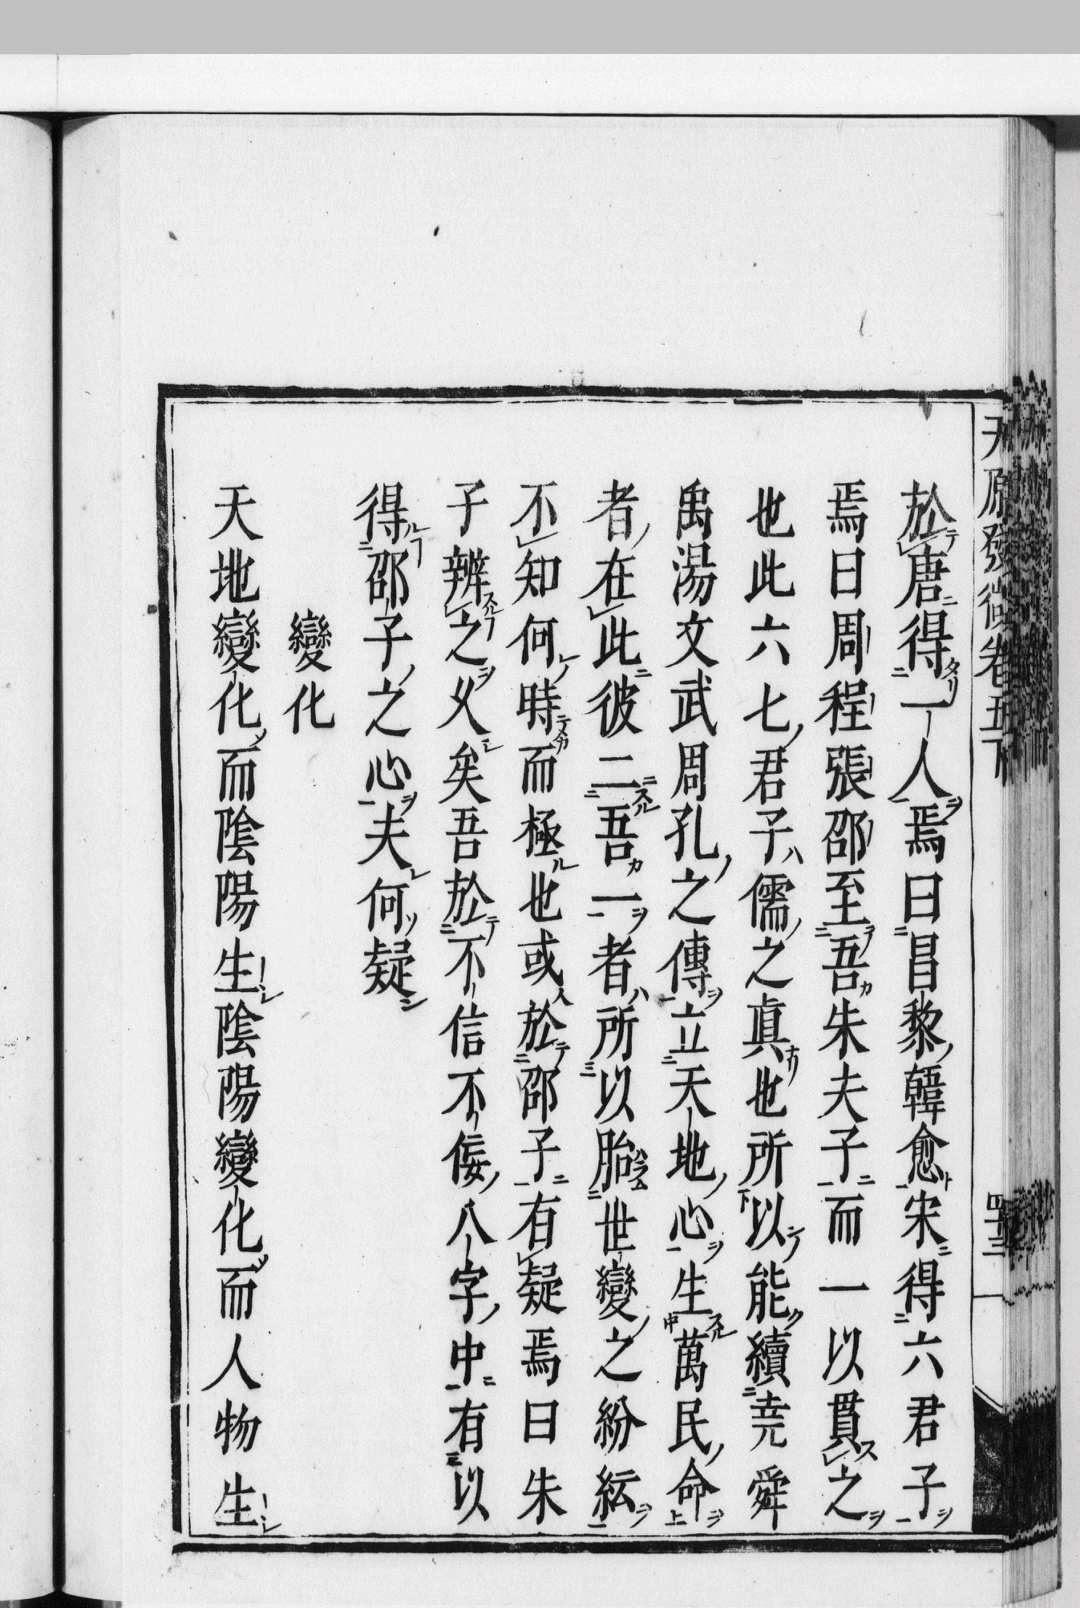 天原發微卷五下
四十三
於唐得一人焉曰昌黎韓愈宋得六君子
焉曰周程張邵至吾朱夫子而一以貫之
也此六七君子儒之眞也所以能續堯舜
禹湯文武周孔之傳立天地心生萬民命
者在此彼二吾一者所以胎世變之紛紜
不知何時而極也或於邵子有疑焉曰朱
子辨之乆矣吾於不信不佞八字中有以
得邵子之心夫何疑
變化
天地變化而隂陽生隂陽變化而人物生